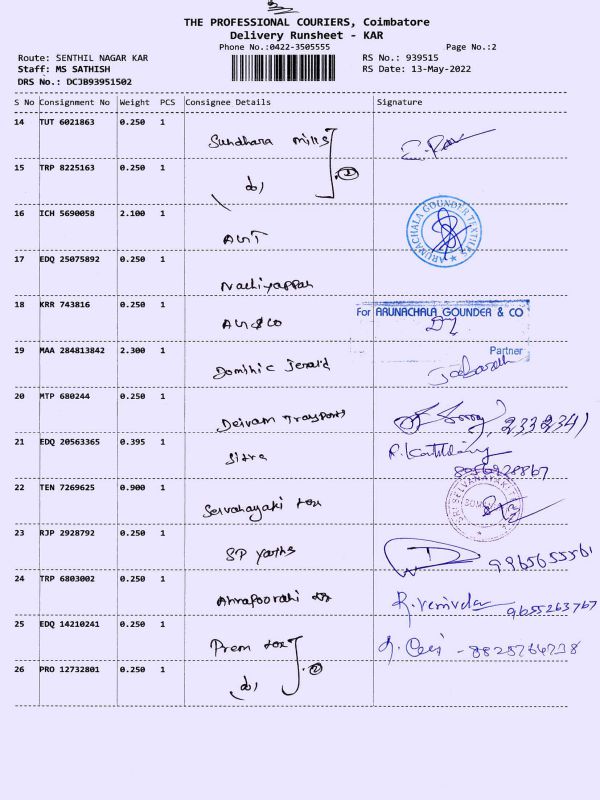 THE PROFESSIONAL COURIERS, Coimbatore
Delivery Runsheet - KAR
Phone No.:0422-3505555
Page No.:2
Route: SENTHIL NAGAR KAR
RS No.: 939515
Staff: MS SATHISH
RS Date: 13-May-2022
DRS No.: DCJB93951502
S No Consignment No Weight PCS Consignee Details Signature
14 TUT 6021863 0.250 1 Sundhara mills
15 TRP 8225163 0.250 1 do
16 ICH 5690058 2.100 1 AGT
ARUNACHALA GOUNDER TEXTILES
17 EDQ 25075892 0.250 1 Nachiyappan
18 KRR 743816 0.250 1 AG & CO
For ARUNACHALA GOUNDER & CO
Partner
19 MAA 284813842 2.300 1 Dominic Jerald
20 MTP 680244 0.250 1 Deivam Transports
2332341
21 EDQ 20563365 0.395 1 Sitra
8056228867
22 TEN 7269625 0.900 1 Selvanayaki tex
SRI SELVANAYAKI
23 RJP 2928792 0.250 1 SP yarns
9965655561
24 TRP 6803002 0.250 1 Annapoorani tex
9655263767
25 EDQ 14210241 0.250 1 Prem tex
8825764238
26 PRO 12732801 0.250 1 do 2